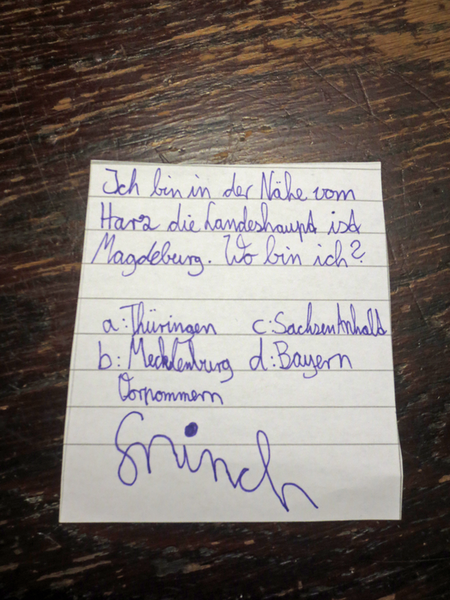 Ich bin in der Nähe vom
Harz die Landeshaupt ist
Magdeburg. Wo bin ich?
a: Thüringen c: SachsenAnhalt
b: Mecklenburg d: Bayern
Vorpommern
Grinch